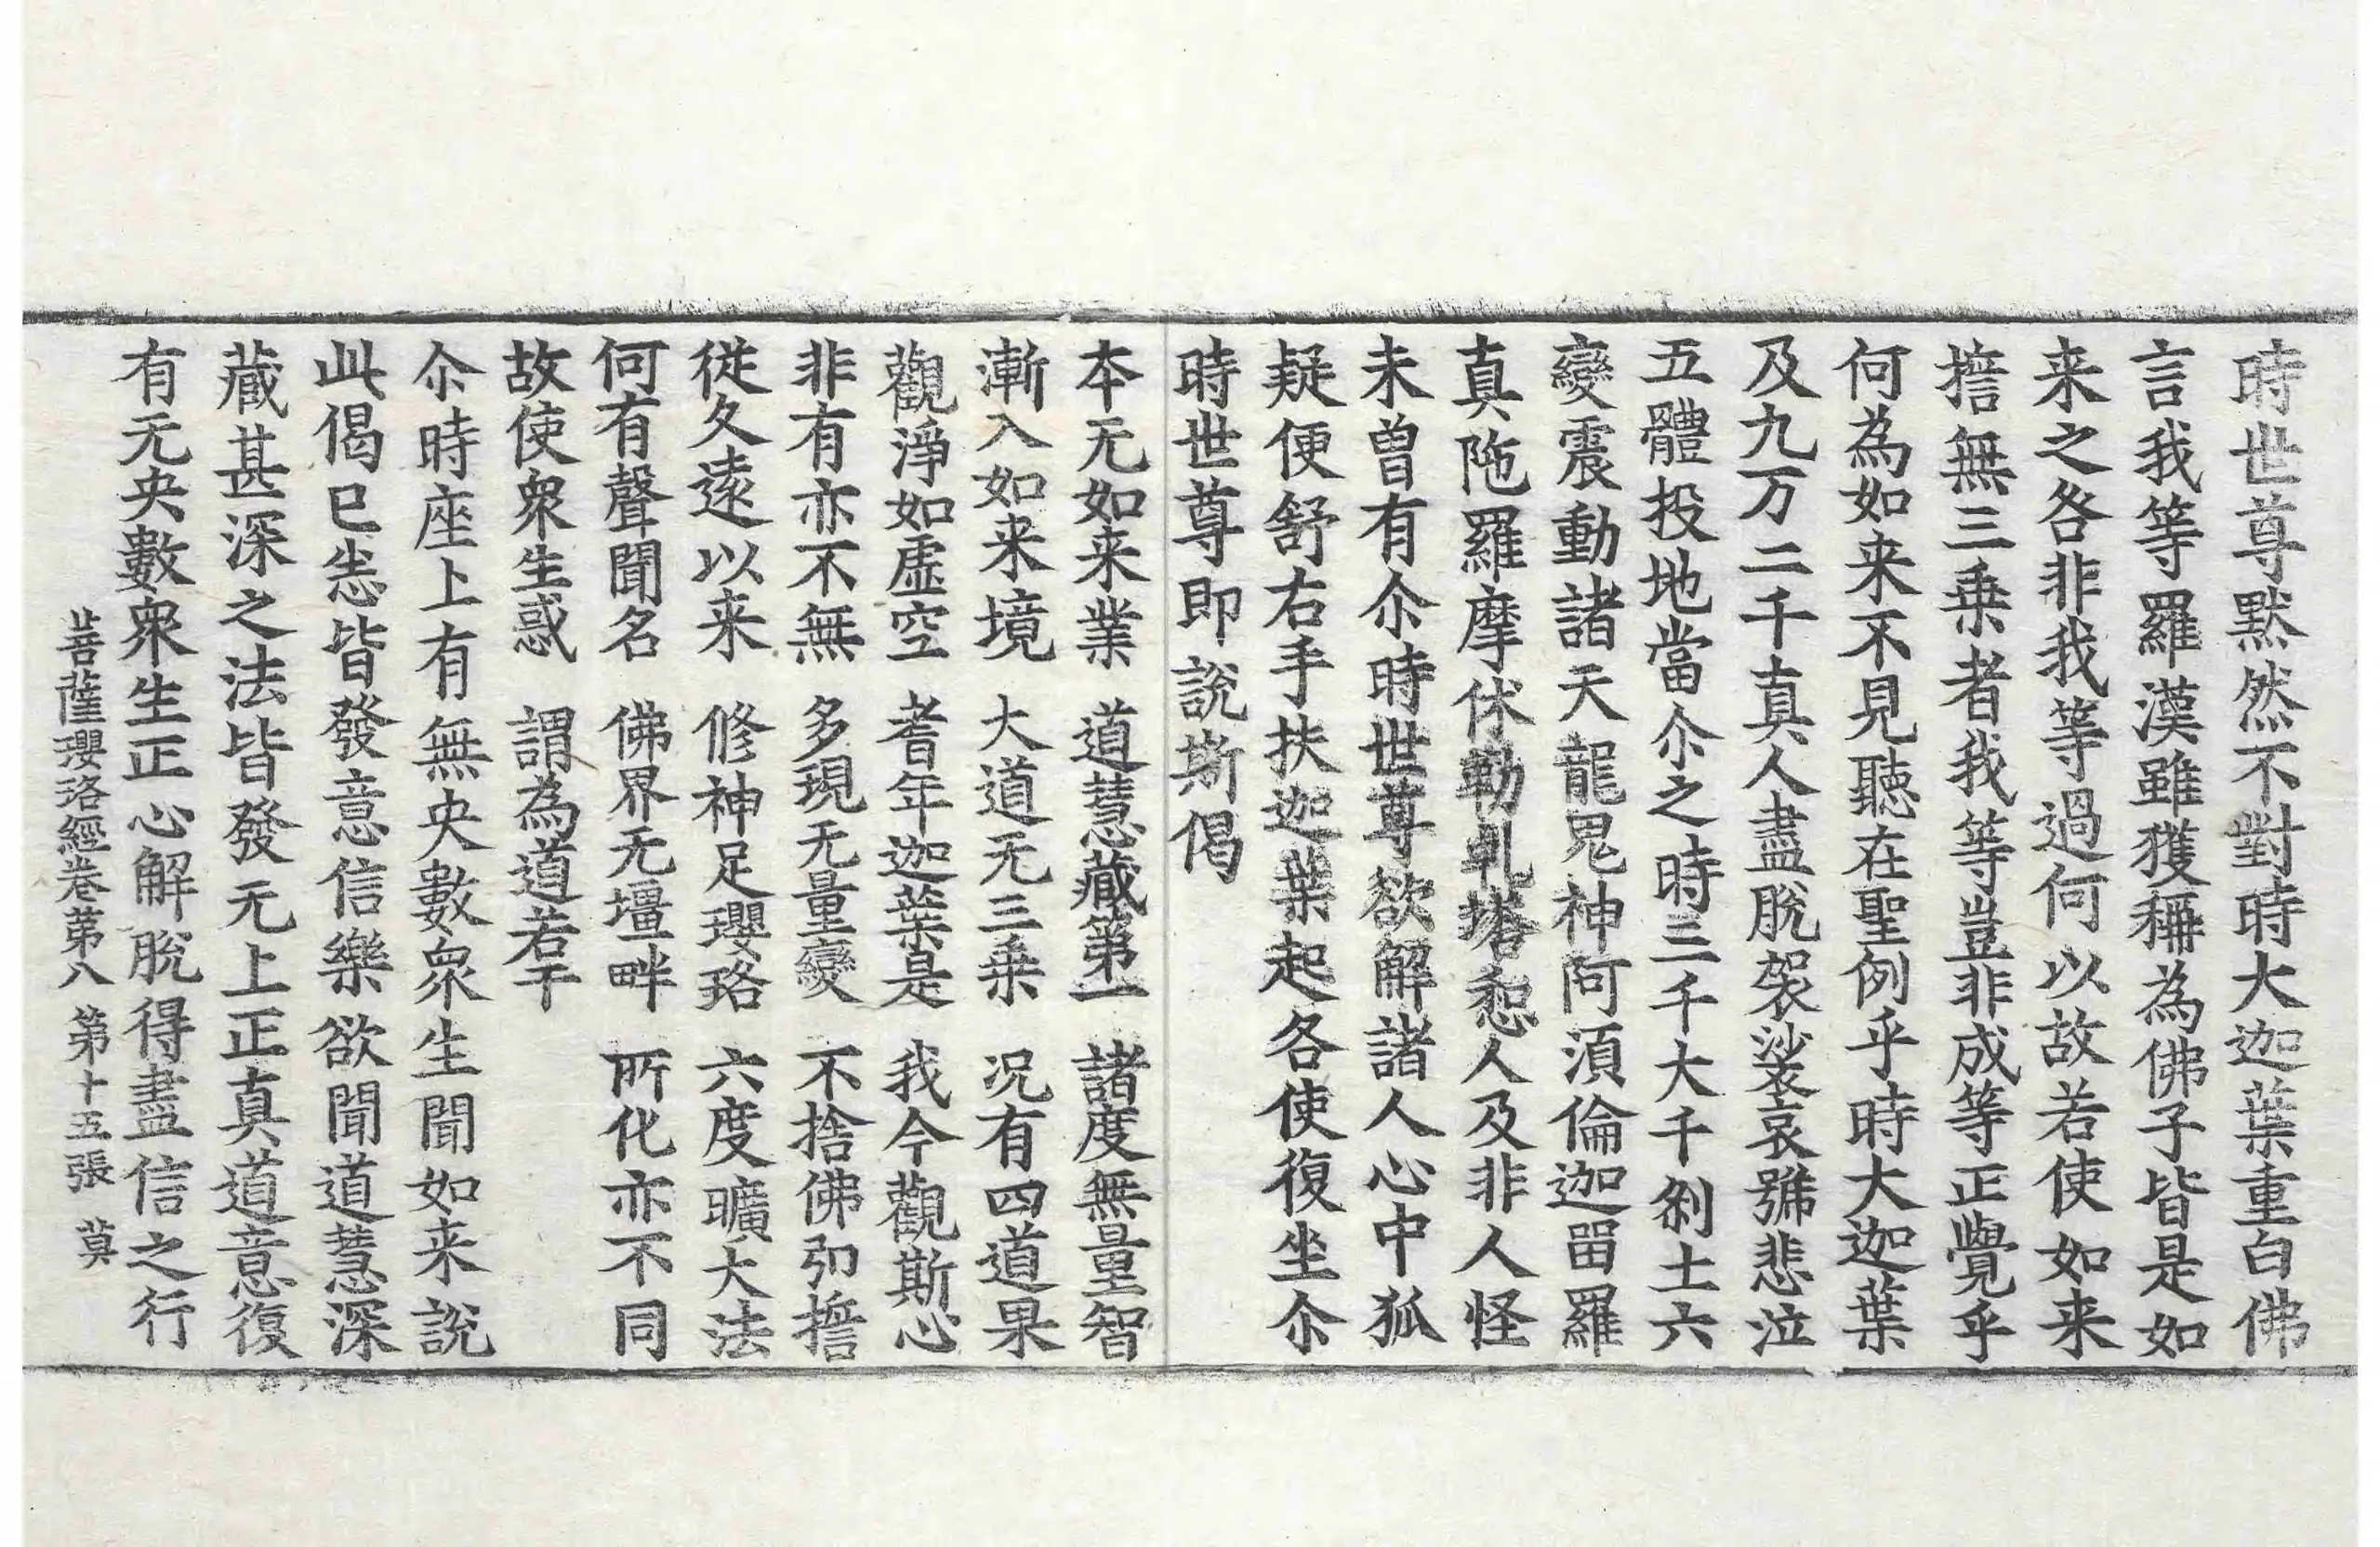 時世尊默然不對時大迦葉重白佛
言我等羅漢雖獲稱為佛子皆是如
来之咎非我等過何以故若使如来
擔無三乗者我等豈非成等正覺乎
何為如来不見聽在聖例乎時大迦葉
及九万二千真人盡脫袈裟哀號悲泣
五體投地當尒之時三千大千剎土六
變震動諸天龍鬼神阿須倫迦留羅
真陁羅摩休勒乹塔惒人及非人怪
未曾有尒時世尊欲解諸人心中狐
疑便舒右手扶迦葉起各使復坐尒
時世尊即說斯偈
本无如来業　道慧藏第一　諸度無量智
漸入如来境　大道无三乗　况有四道果
觀淨如虛空　耆年迦葉是　我今觀斯心
非有亦不無　多現无量變　不捨佛弘擔
從久遠以来　修神足瓔珞　六度曠大法
何有聲聞名　佛界无壃畔　所化亦不同
故使衆生惑　謂為道若干
尒時座上有無央數衆生聞如来說
此偈已恙皆發意信樂欲聞道慧深
藏甚深之法皆發无上正真道意復
有无央數衆生正心解脫得盡信之行
菩薩瓔珞經卷第八　第十五張　莫